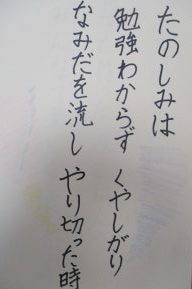 たのしみは
勉強わからず くやしがり
なみだを流し やり切った時